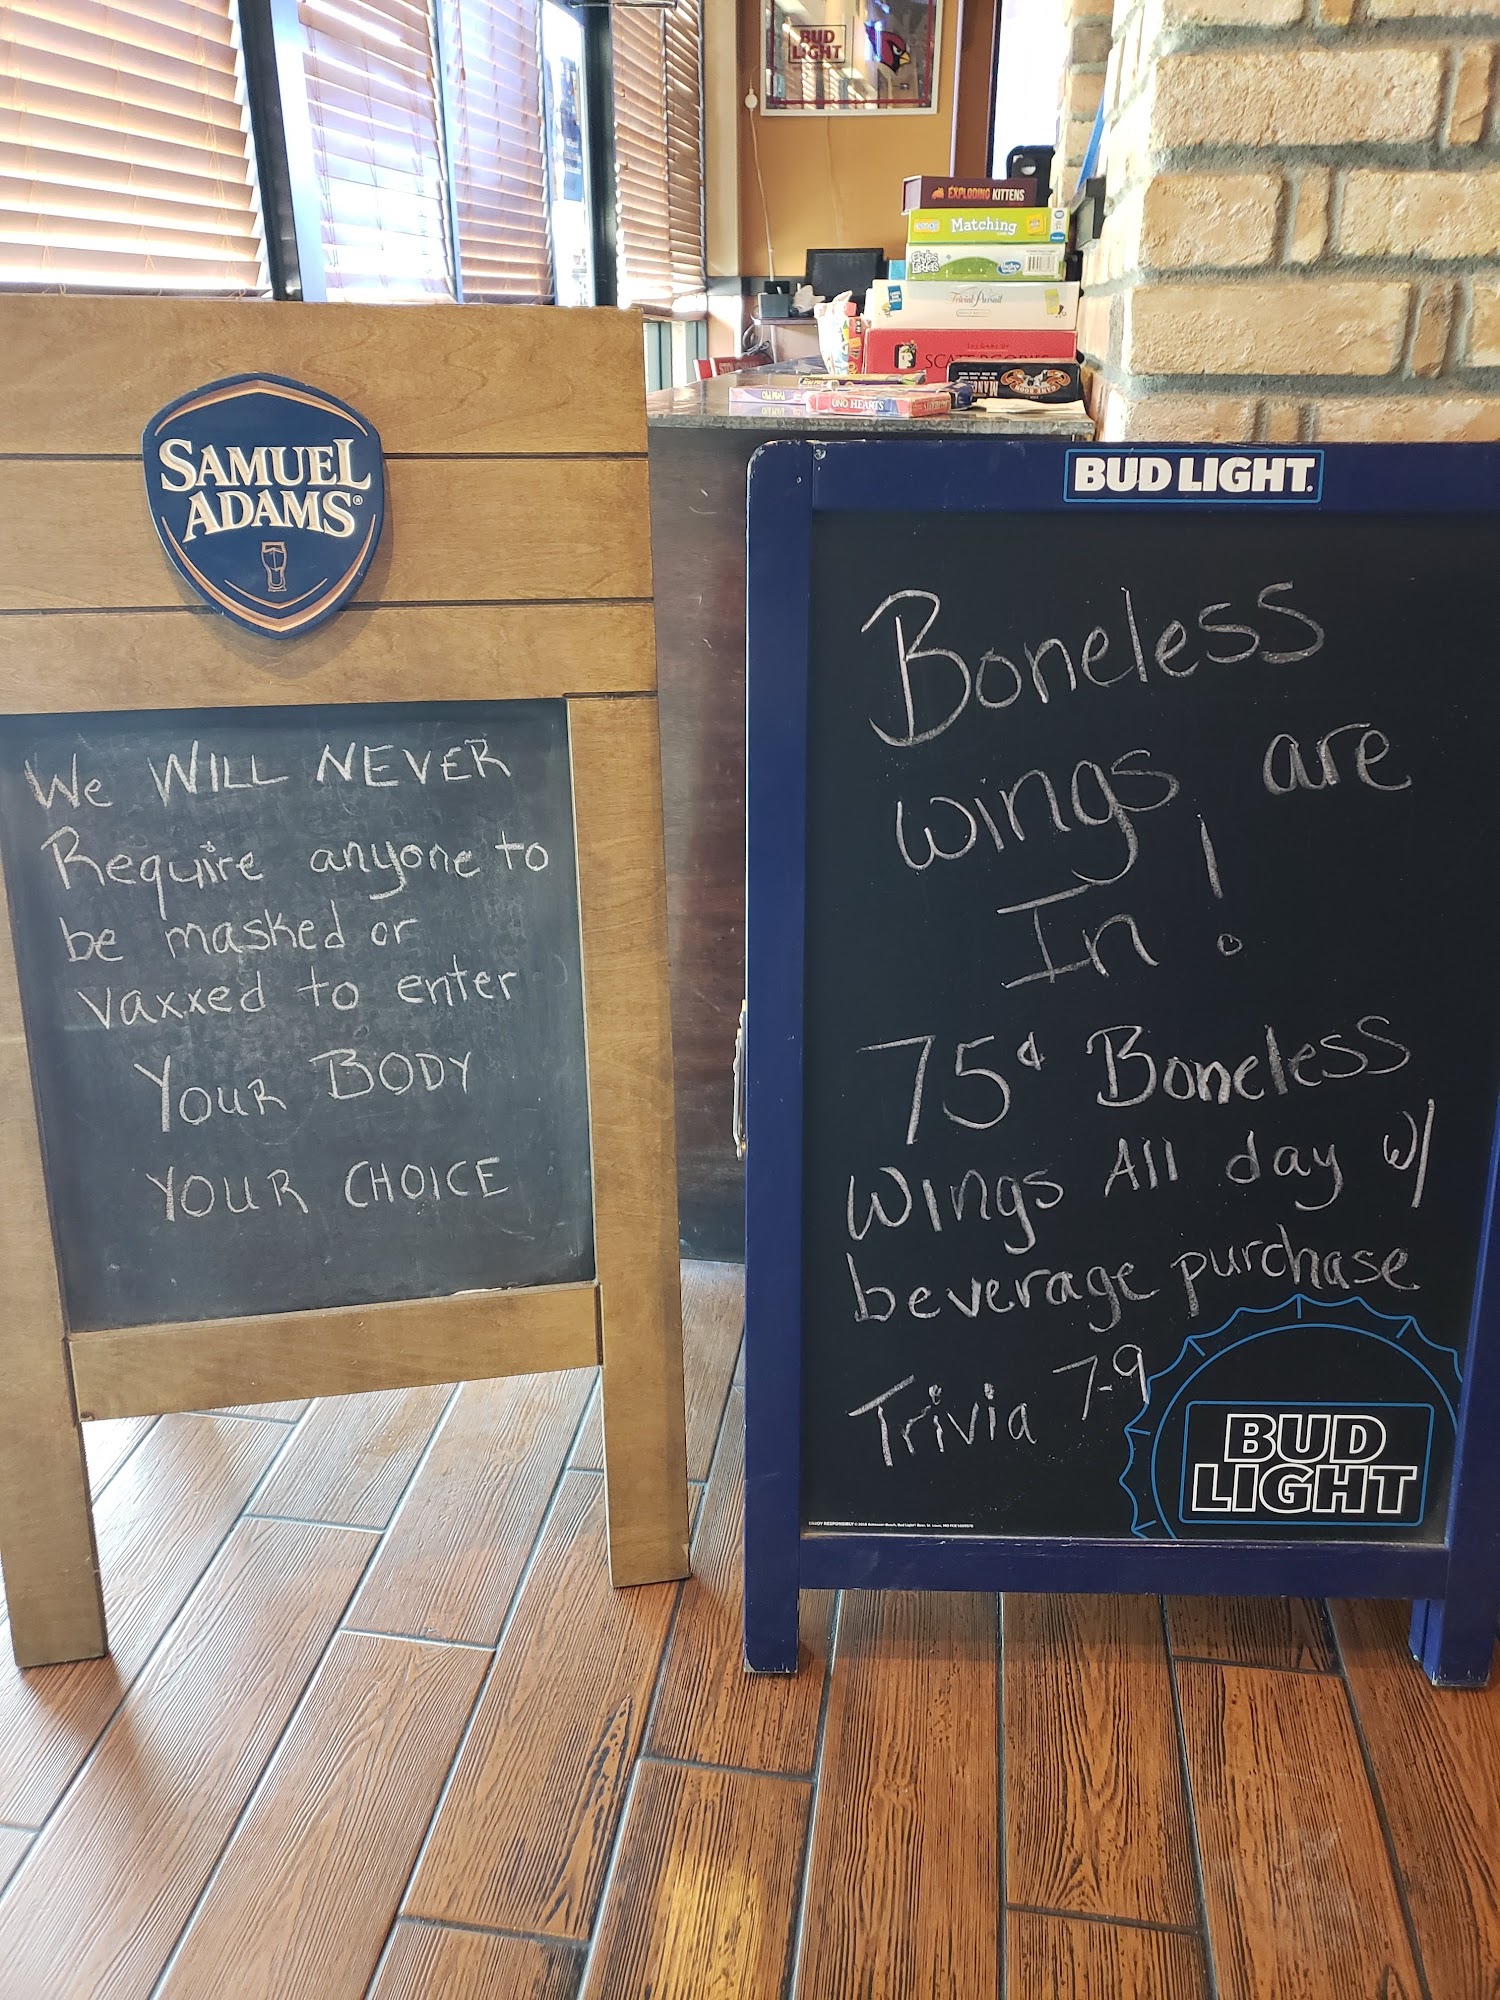 BUD
LIGHT
EXPLODING KITTENS
Matching
Trivial Pursuit
UNO HEARTS
SAMUEL
ADAMS®
We WILL NEVER
Require anyone to
be masked or
vaxxed to enter
YOUR BODY
YOUR CHOICE
BUD LIGHT.
Boneless
wings are
In!
75¢ Boneless
Wings All day w/
beverage purchase
Trivia 7-9
BUD
LIGHT